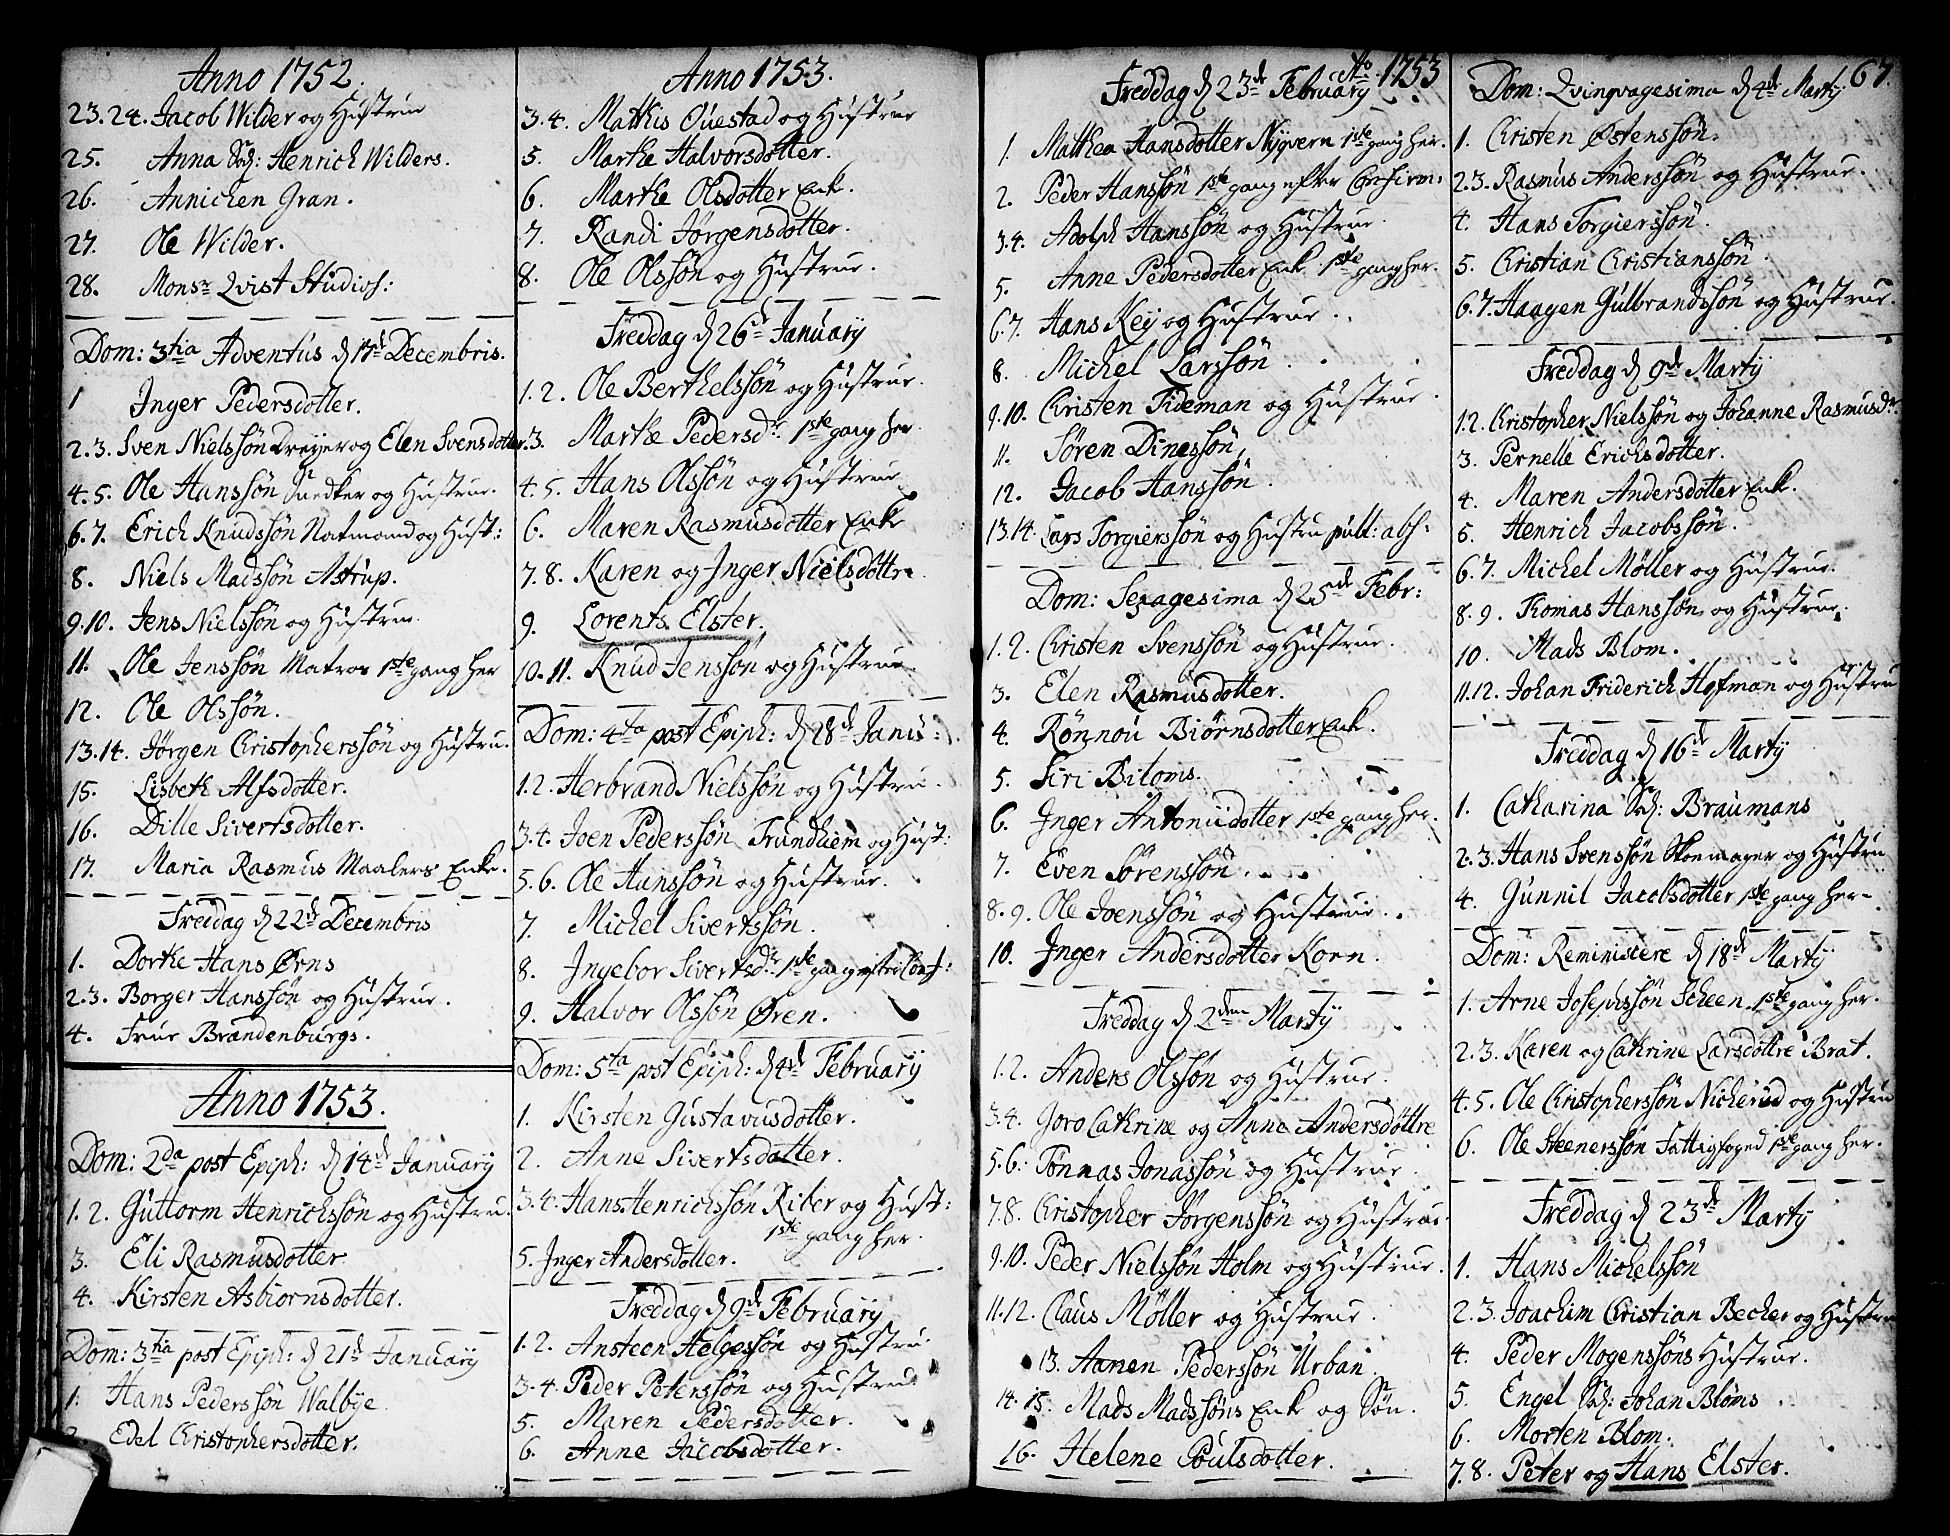 Anno 1752.
23.24. Jacob Wilder og Hustrue
25. Anna Sal: Henrich Wilders.
26. Annichen Gran.
27. Ole Wilder.
28. Monsr Qvist Studios:
Dom: 3tia Adventus d 17d Decembris.
1 Inger Pedersdotter.
2.3. Sven Nielssøn Dreyer og Elen Svensdotter.
4.5. Ole Hanssøn Snedker og Hustrue.
6.7. Erich Knudssøn Natmand og Hust:
8. Niels Madssøn Astrup.
9.10. Jens Nielssøn og Hustrue
11. Ole Jenssøn Matros 1ste gang her
12. Ole Olssøn.
13.14. Jørgen Christopherssøn og Hustru.
15. Lisbeth Alfsdotter.
16. Dille Sivertsdotter.
17. Maria Rasmus Maalers Enke.
Freddag d 22d Decembris
1. Dorthe Hans Ørns
2.3. Borger Hanssøn og Hustrue.
4. Frue Brandenburgs.
Anno 1753.
Dom: 2da post Epiph: d 14d January
1.2. Guttorm Henrichssøn og Hustru.
3. Eli Rasmusdotter
4. Kirsten Asbiornsdotter.
Dom: 3tia post Epiph: d 21d January
1. Hans Pederssøn Walbye
2. Edel Christophersdotter.
Anno 1753.
3.4. Mathis Ouestad og Hustrue
5. Marthe Halvorsdotter.
6. Marthe Olsdotter Enk.
7. Randi Jørgensdotter.
8. Ole Olssøn og Hustrue.
Freddag d 26d January
1.2. Ole Berthelssøn og Hustrue.
3. Marthe Pedersdr. 1ste gang her
4.5. Hans Olssøn og Hustrue
6. Maren Rasmusdotter Enke
7.8. Karen og Inger Nielsdøttre.
9. Lorents Elster.
10.11. Knud Jenssøn og Hustrue.
Dom: 4ta post Epiph: d 28d Janu:
1.2. Herbrand Nielssøn og Hustru.
3.4. Joen Pederssøn Trundhiem og Hust:
5.6. Ole Hanssøn og Hustrue.
7. Michel Sivertssøn.
8. Ingebor Sivertsdr. 1ste gang efter Conf:
9. Halvor Olssøn Øren.
Dom: 5ta post Epiph: d 4d February
1. Kirsten Gustavusdotter.
2. Anne Sivertsdotter.
3.4. Hans Henrichssøn Riber og Hust:
1ste gang her.
5. Inger Andersdotter.
Freddag d 9d February
1.2. Ansteen Helgessøn og Hustru
3.4. Peder Peterssøn og Hustru.
5. Maren Pedersdotter.
6. Anne Jacobsdotter.
Ao. 1753
Freddag d 23d February
1. Matthea Hansdotter Nyvern 1ste gang her.
2. Peder Hanssøn 1ste gang efter Confirm:
3.4. Adolph Hanssøn og Hustrue.
5. Anne Pedersdotter Enk 1ste gang her.
6.7. Hans Key og Hustrue.
8. Michel Larssøn.
9.10. Christen Tideman og Hustrue.
11. Søren Dinessøn,
12. Jacob Hanssøn.
13.14. Lars Torgierssøn og Hustru publ: abs:
Dom: Sexagesima d 25de Febr:
1.2. Christen Svenssøn og Hustrue.
3. Elen Rasmusdotter.
4. Rønnou Biørnsdotter Enk.
5. Siri Biloms.
6. Inger Antoniidotter 1ste gang her.
7. Even Sørenssøn.
8.9. Ole Joenssøn og Hustrue.
10. Inger Andersdotter Korn.
Freddag d 2den Marty
1.2. Anders Olssøn og Hustrue.
3.4. Goro Cathrine og Anne Andersdøttre
5.6. Tønnas Jonassøn og Hustrue.
7.8. Christopher Jørgenssøn og Hustrue.
9.10. Peder Nielssøn Holm og Hustrue.
11.12. Claus Møller og Hustrue.
13. Aanen Pederssøn Urban.
14.15. Mads Madssøns Enk og Søn.
16. Helene Poulsdotter.
67.
Dom: Qvinqvagesima d 4d Marty
1. Christen Østenssøn.
2.3. Rasmus Anderssøn og Hustrue.
4. Hans Torgierssøn.
5. Christian Christianssøn.
6.7. Haagen Gulbrandssøn og Hustrue.
Freddag d 9d Marty
1.2. Christopher Nielssøn og Johanne Rasmusdr.
3. Pernelle Erichsdotter.
4. Maren Andersdotter Enk.
5. Henrich Jacobssøn.
6.7. Michel Møller og Hustrue.
8.9. Thomas Hanssøn og Hustrue.
10. Mads Blom.
11.12. Johan Friderich Hofman og Hustru
Freddag d 16d Marty
1. Catharina Sal: Braumans
2.3. Hans Svenssøn Skoemager og Hustru
4. Gunnil Jacobsdotter 1ste gang her
Dom: Reminiscere d 18d Marty
1. Arne Josephssøn Scheen 1ste gang her.
2.3. Karen og Cathrine Larsdøttre Brat.
4.5. Ole Christopherssøn Nicherud og Hustru
6. Ole Steenerssøn Fattigfoged 1ste gang her.
Freddag d 23d Marty
1. Hans Michelssøn
2.3. Joachim Christian Becher og Hustru
4. Peder Mogenssøns Hustrue.
5. Engel Sal: Johan Bloms
6. Morten Blom.
7.8. Peter og Hans Elster.